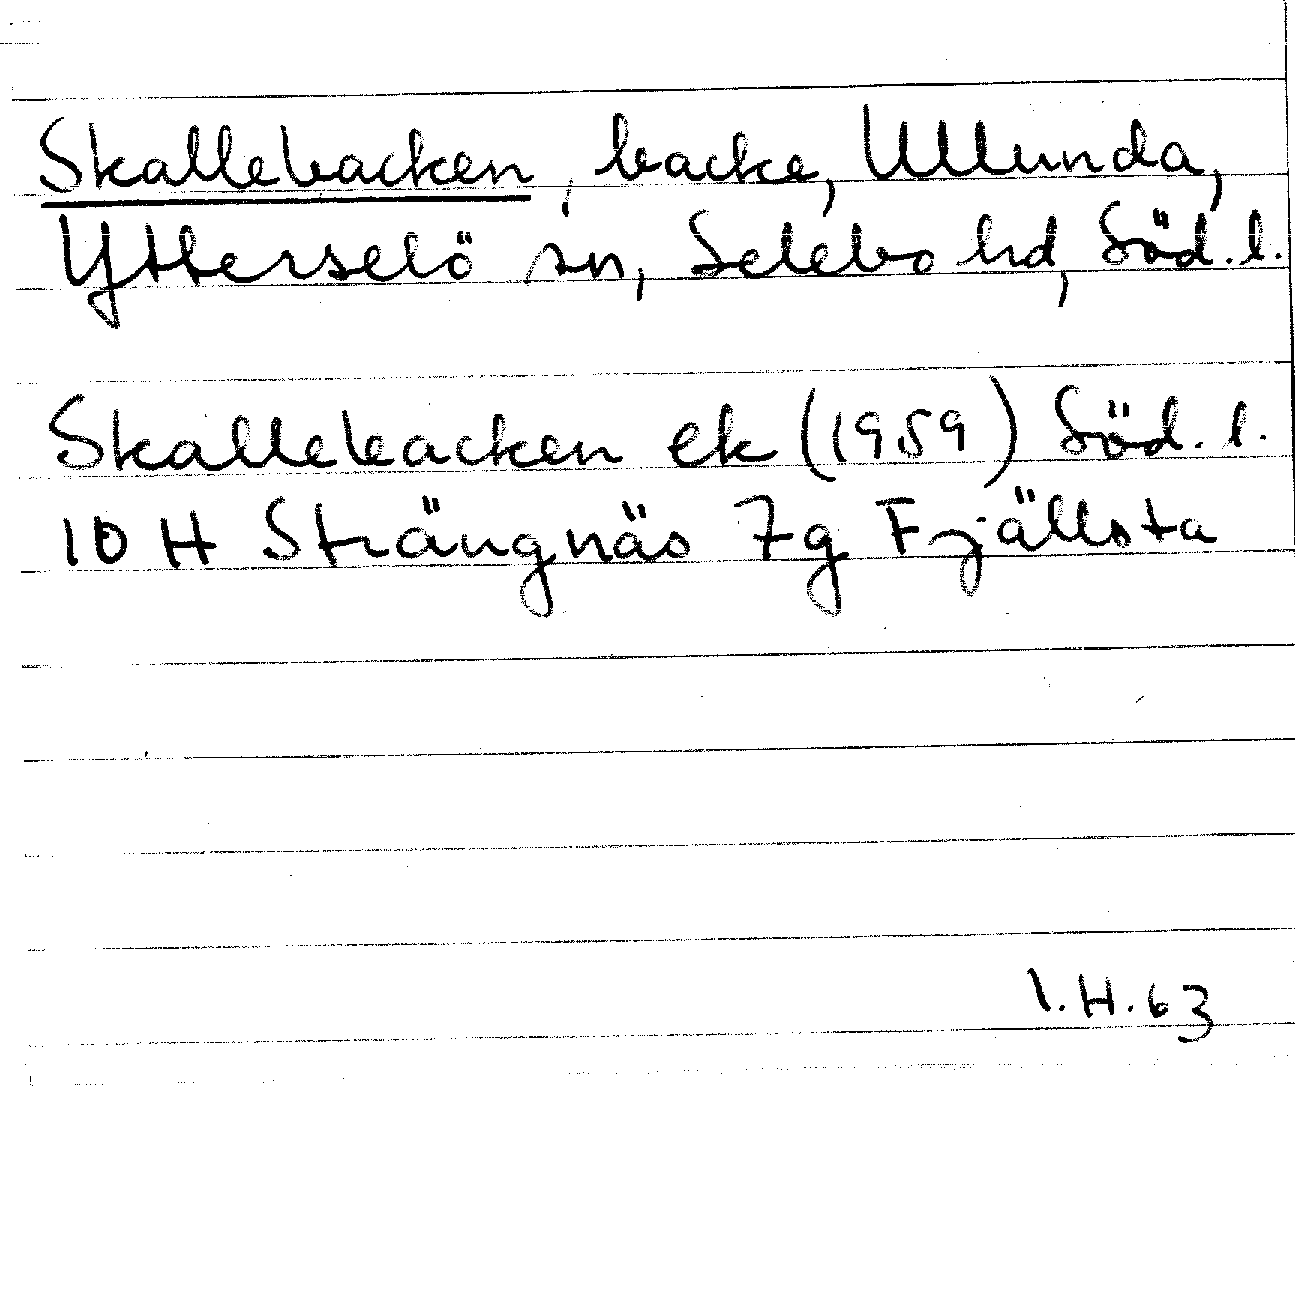 Skallebacken, backe, Ullunda,
Ytterselö sn, Selebo hd, Söd. l.
Skallebacken ek (1959) Söd. l.
10 H Strängnäs 7g Fjällsta
I.H.63